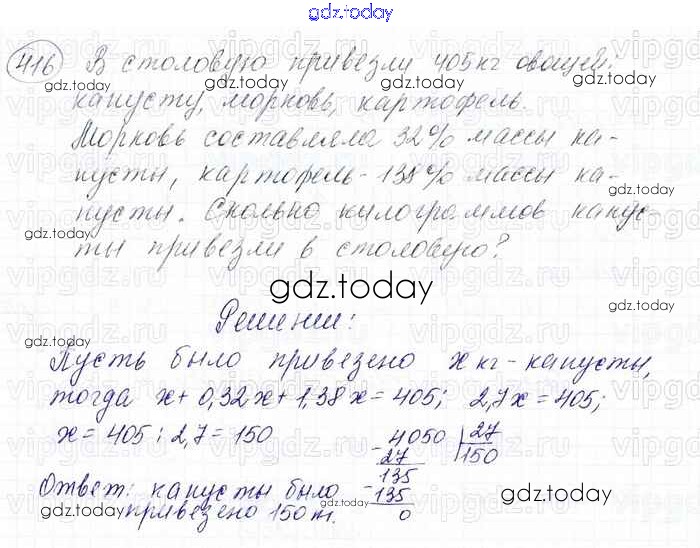 gdz.today
416 В столовую привезли 405 кг овощей:
капусту, морковь, картофель.
Морковь составляла 32% массы ка-
пусты, картофель - 138% массы ка-
пусты. Сколько килограммов капус-
ты привезли в столовую?
gdz.today
Решение:
Пусть было привезено x кг - капусты,
тогда x + 0,32x + 1,38x = 405; 2,7x = 405;
x = 405 : 2,7 = 150
- 4050 | 27
27 150
135
- 135
0
Ответ: капусты было
привезено 150 т.
gdz.today